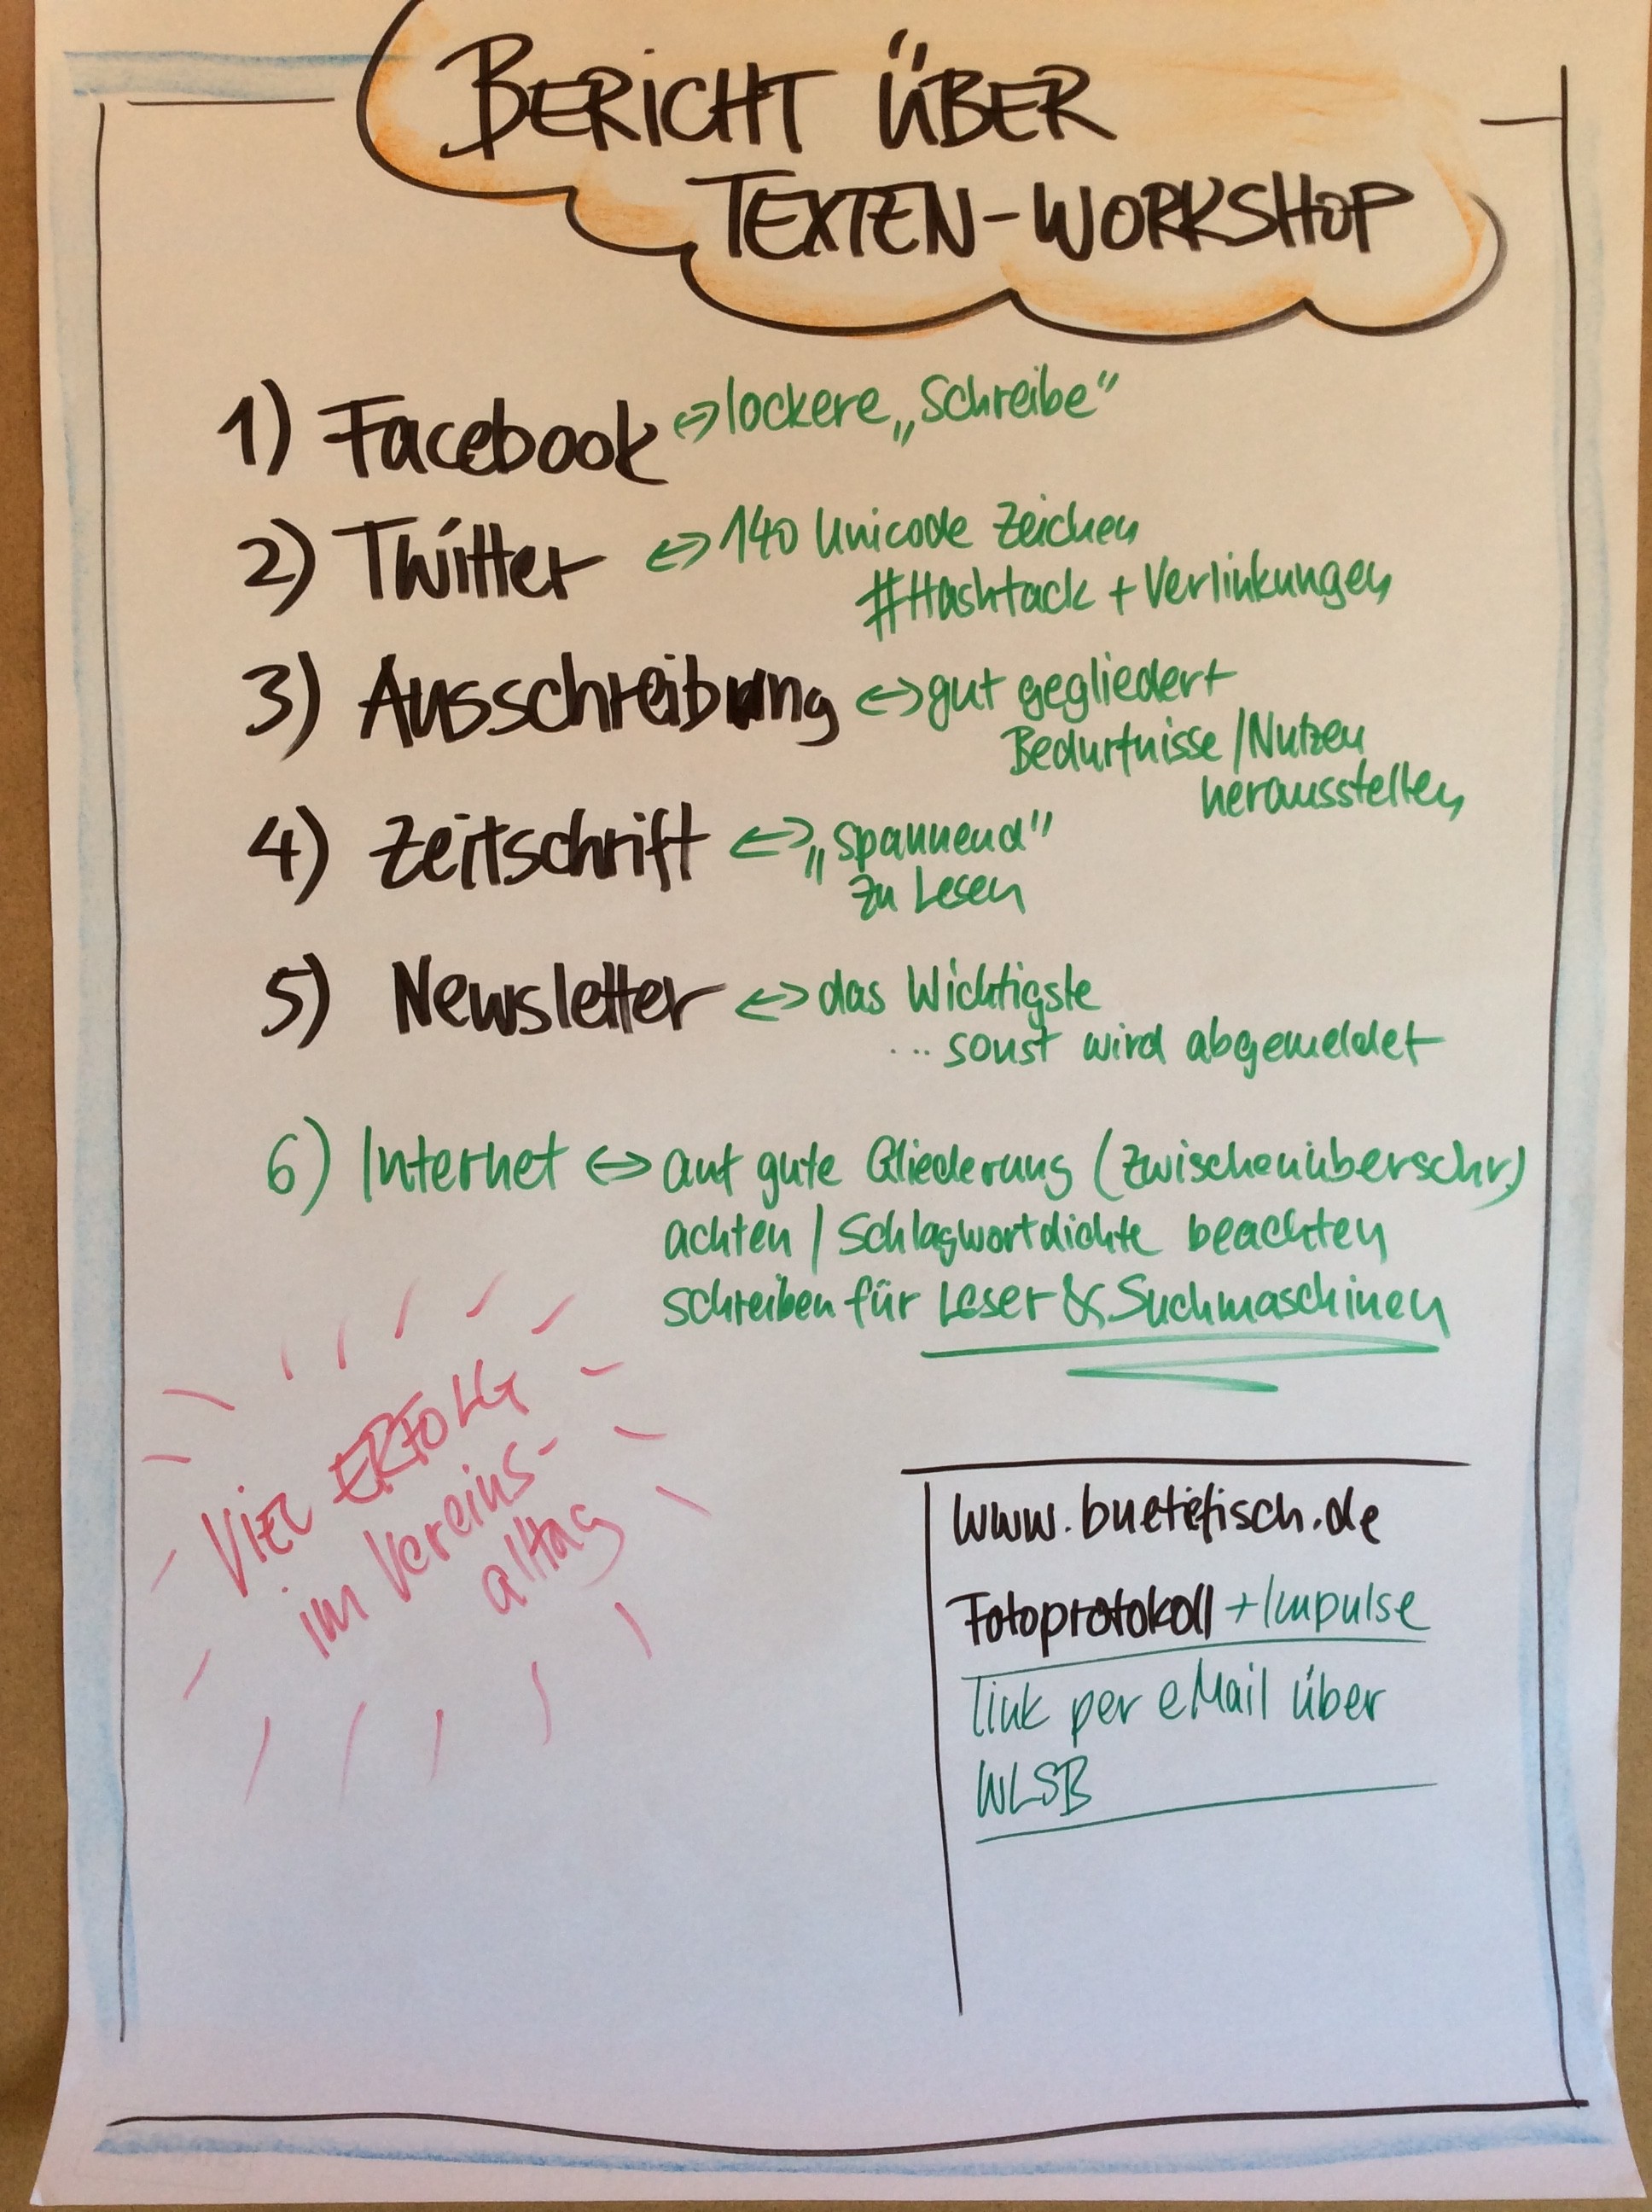 BERICHT ÜBER
TEXTEN-WORKSHOP
1) Facebook ↔ lockere „Schreibe"
2) Twitter ↔ 140 Unicode Zeichen
#Hashtack + Verlinkungen
3) Ausschreibung ↔ gut gegliedert
Bedürfnisse / Nutzen
herausstellen
4) Zeitschrift ↔ „spannend"
zu Lesen
5) Newsletter ↔ das Wichtigste
... sonst wird abgemeldet
6) Internet ↔ auf gute Gliederung (Zwischenüberschr.)
achten / Schlagwortdichte beachten
schreiben für Leser & Suchmaschinen
VIEL ERFOLG
im Vereins-
alltag
www.buetefisch.de
Fotoprotokoll + Impulse
Link per eMail über
WLSB